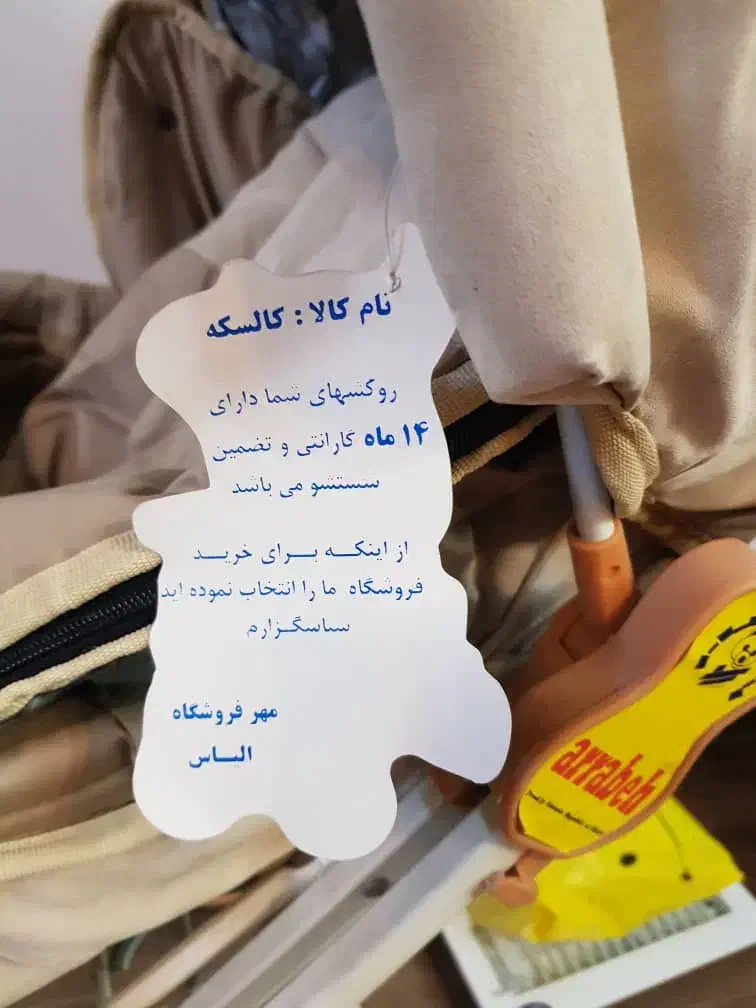 نام کالا : کالسکه
روکشهای شما دارای
۱۴ ماه گارانتی و تضمین
شستشو می باشد
از اینکه برای خرید
فروشگاه ما را انتخاب نموده اید
سپاسگزارم
مهر فروشگاه
الیاس
arrabeh